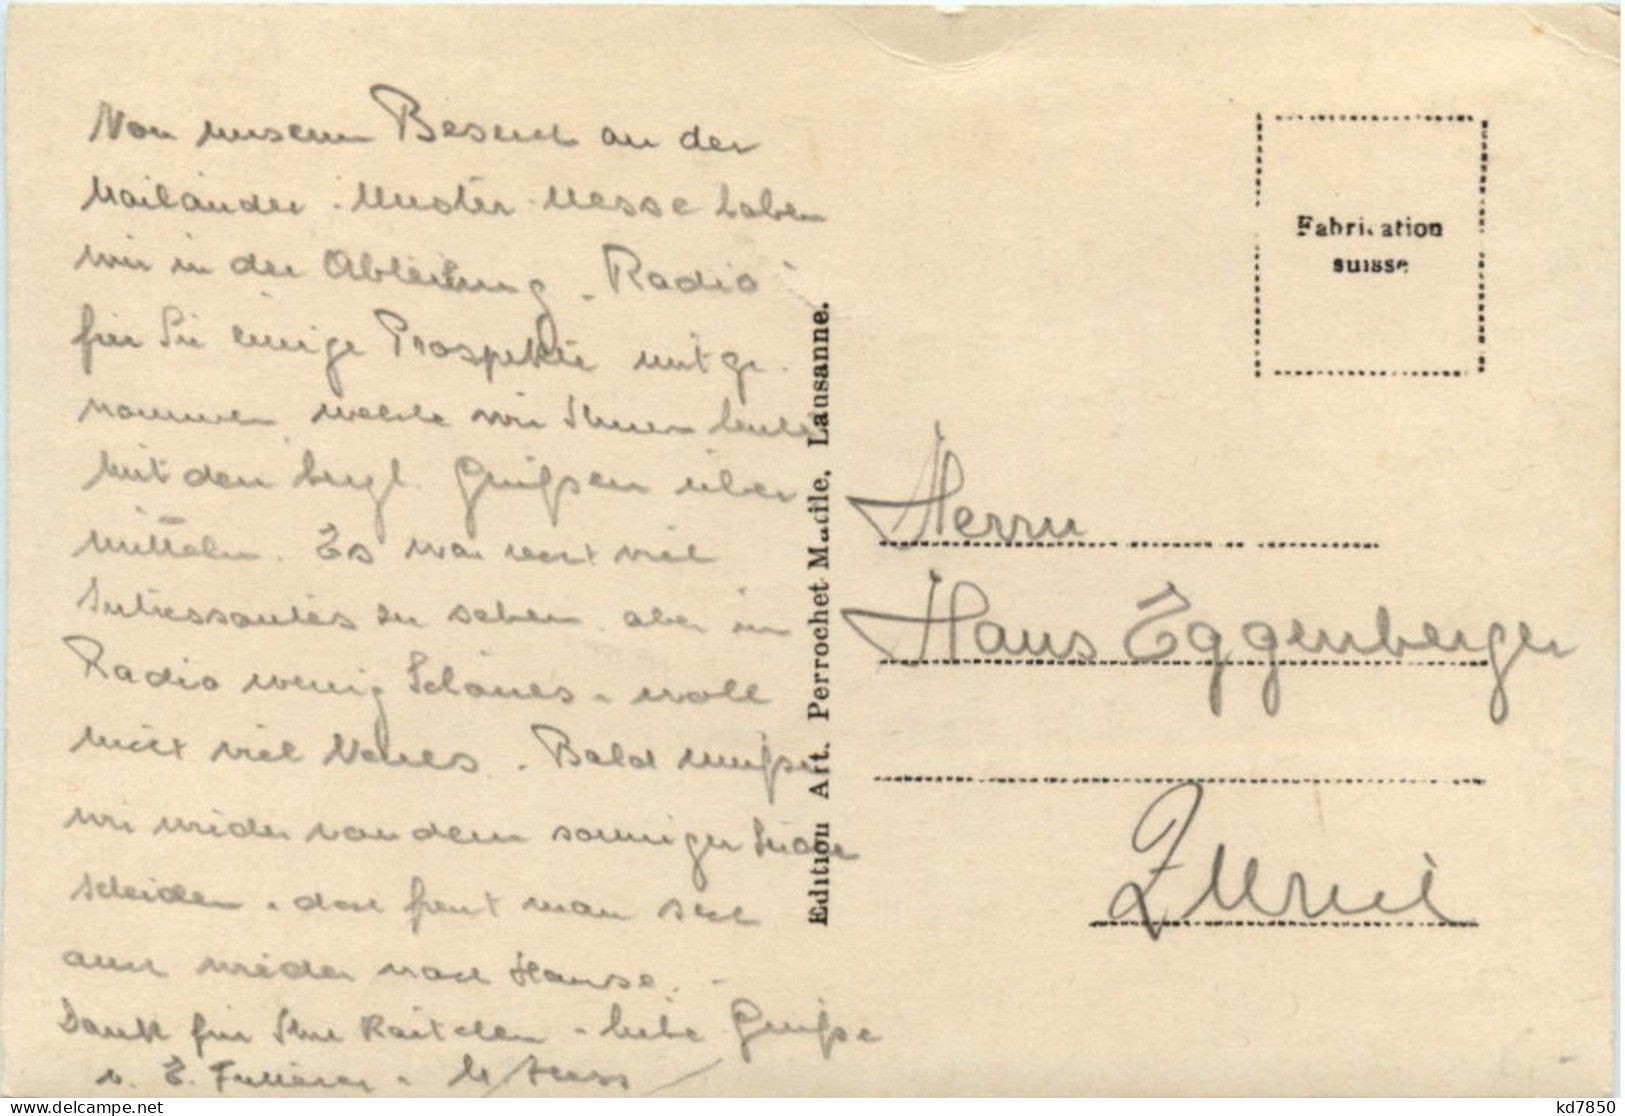 Von unserem Besuch an der
Mailänder-Muster-Messe haben
wir in der Abteilung „Radio"
für Sie einige Prospekte mitge-
nommen welche wir Ihnen heute
mit den bezl. Grüßen über
mitteln. Es war recht viel
Intressantes zu sehen aber im
Radio wenig Schönes - wohl
nicht viel Neues. - Bald müßen
wir wieder von dem sonnigen Süden
scheiden - doch freut man sich
auch wieder nach Hause. -
Dank für Ihre Kärtchen - liebe Grüße
v. E.
Edition Art. Perrochet-Matile, Lausanne.
Fabrication
suisse
Herrn
Hans Eggenberger
Zürich
kd7850